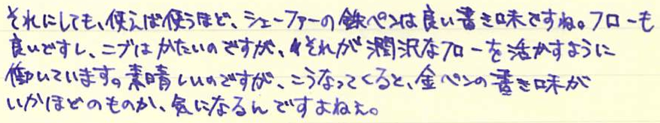 それにしても、使えば使うほど、シェーファーの鉄ペンは良い書き味ですね。フローも
良いですし、ニブはかたいのですが、それが潤沢なフローを活かすように
働いています。素晴しいのですが、こうなってくると、金ペンの書き味が
いかほどのものか、気になるんですよねぇ。